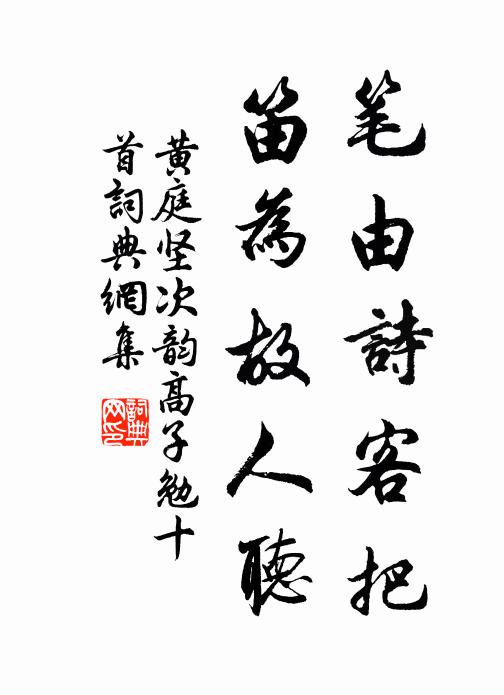 笔由詩客把
笛為故人聽
黄庭坚次韵高子勉十
首詞典網集
詞典
网印